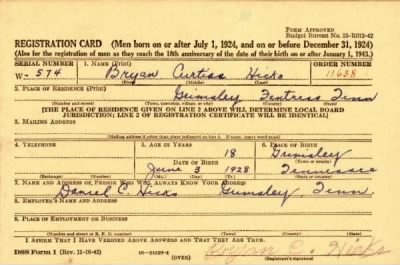 FORM APPROVED
Budget Bureau No. 33-R012-42
REGISTRATION CARD (Men born on or after July 1, 1924, and on or before December 31, 1924)
(Also for the registration of men as they reach the 18th anniversary of the date of their birth on or after January 1, 1943.)
SERIAL NUMBER 1. NAME (Print) ORDER NUMBER
W- 574 Bryan Curtiss Hicks 11638
(First) (Middle) (Last)
2. PLACE OF RESIDENCE (Print)
Grimsley Fentress Tenn
(Number and street) (Town, township, village, or city) (County) (State)
[THE PLACE OF RESIDENCE GIVEN ON LINE 2 ABOVE WILL DETERMINE LOCAL BOARD
JURISDICTION; LINE 2 OF REGISTRATION CERTIFICATE WILL BE IDENTICAL]
3. MAILING ADDRESS
(Mailing address if other than place indicated on line 2. If same, insert word same)
4. TELEPHONE 5. AGE IN YEARS 6. PLACE OF BIRTH
18 Grimsley
DATE OF BIRTH (Town or county)
June 3 1928 Tennessee
(Exchange) (Number) (Mo.) (Day) (Yr.) (State or country)
7. NAME AND ADDRESS OF PERSON WHO WILL ALWAYS KNOW YOUR ADDRESS
Daniel C. Hicks Grimsley Tenn.
8. EMPLOYER'S NAME AND ADDRESS
9. PLACE OF EMPLOYMENT OR BUSINESS
(Number and street or R. F. D. number) (Town) (County) (State)
I AFFIRM THAT I HAVE VERIFIED ABOVE ANSWERS AND THAT THEY ARE TRUE.
DSS Form 1 (Rev. 11-16-42) (OVER) Bryan C. Hicks
(Registrant's signature)